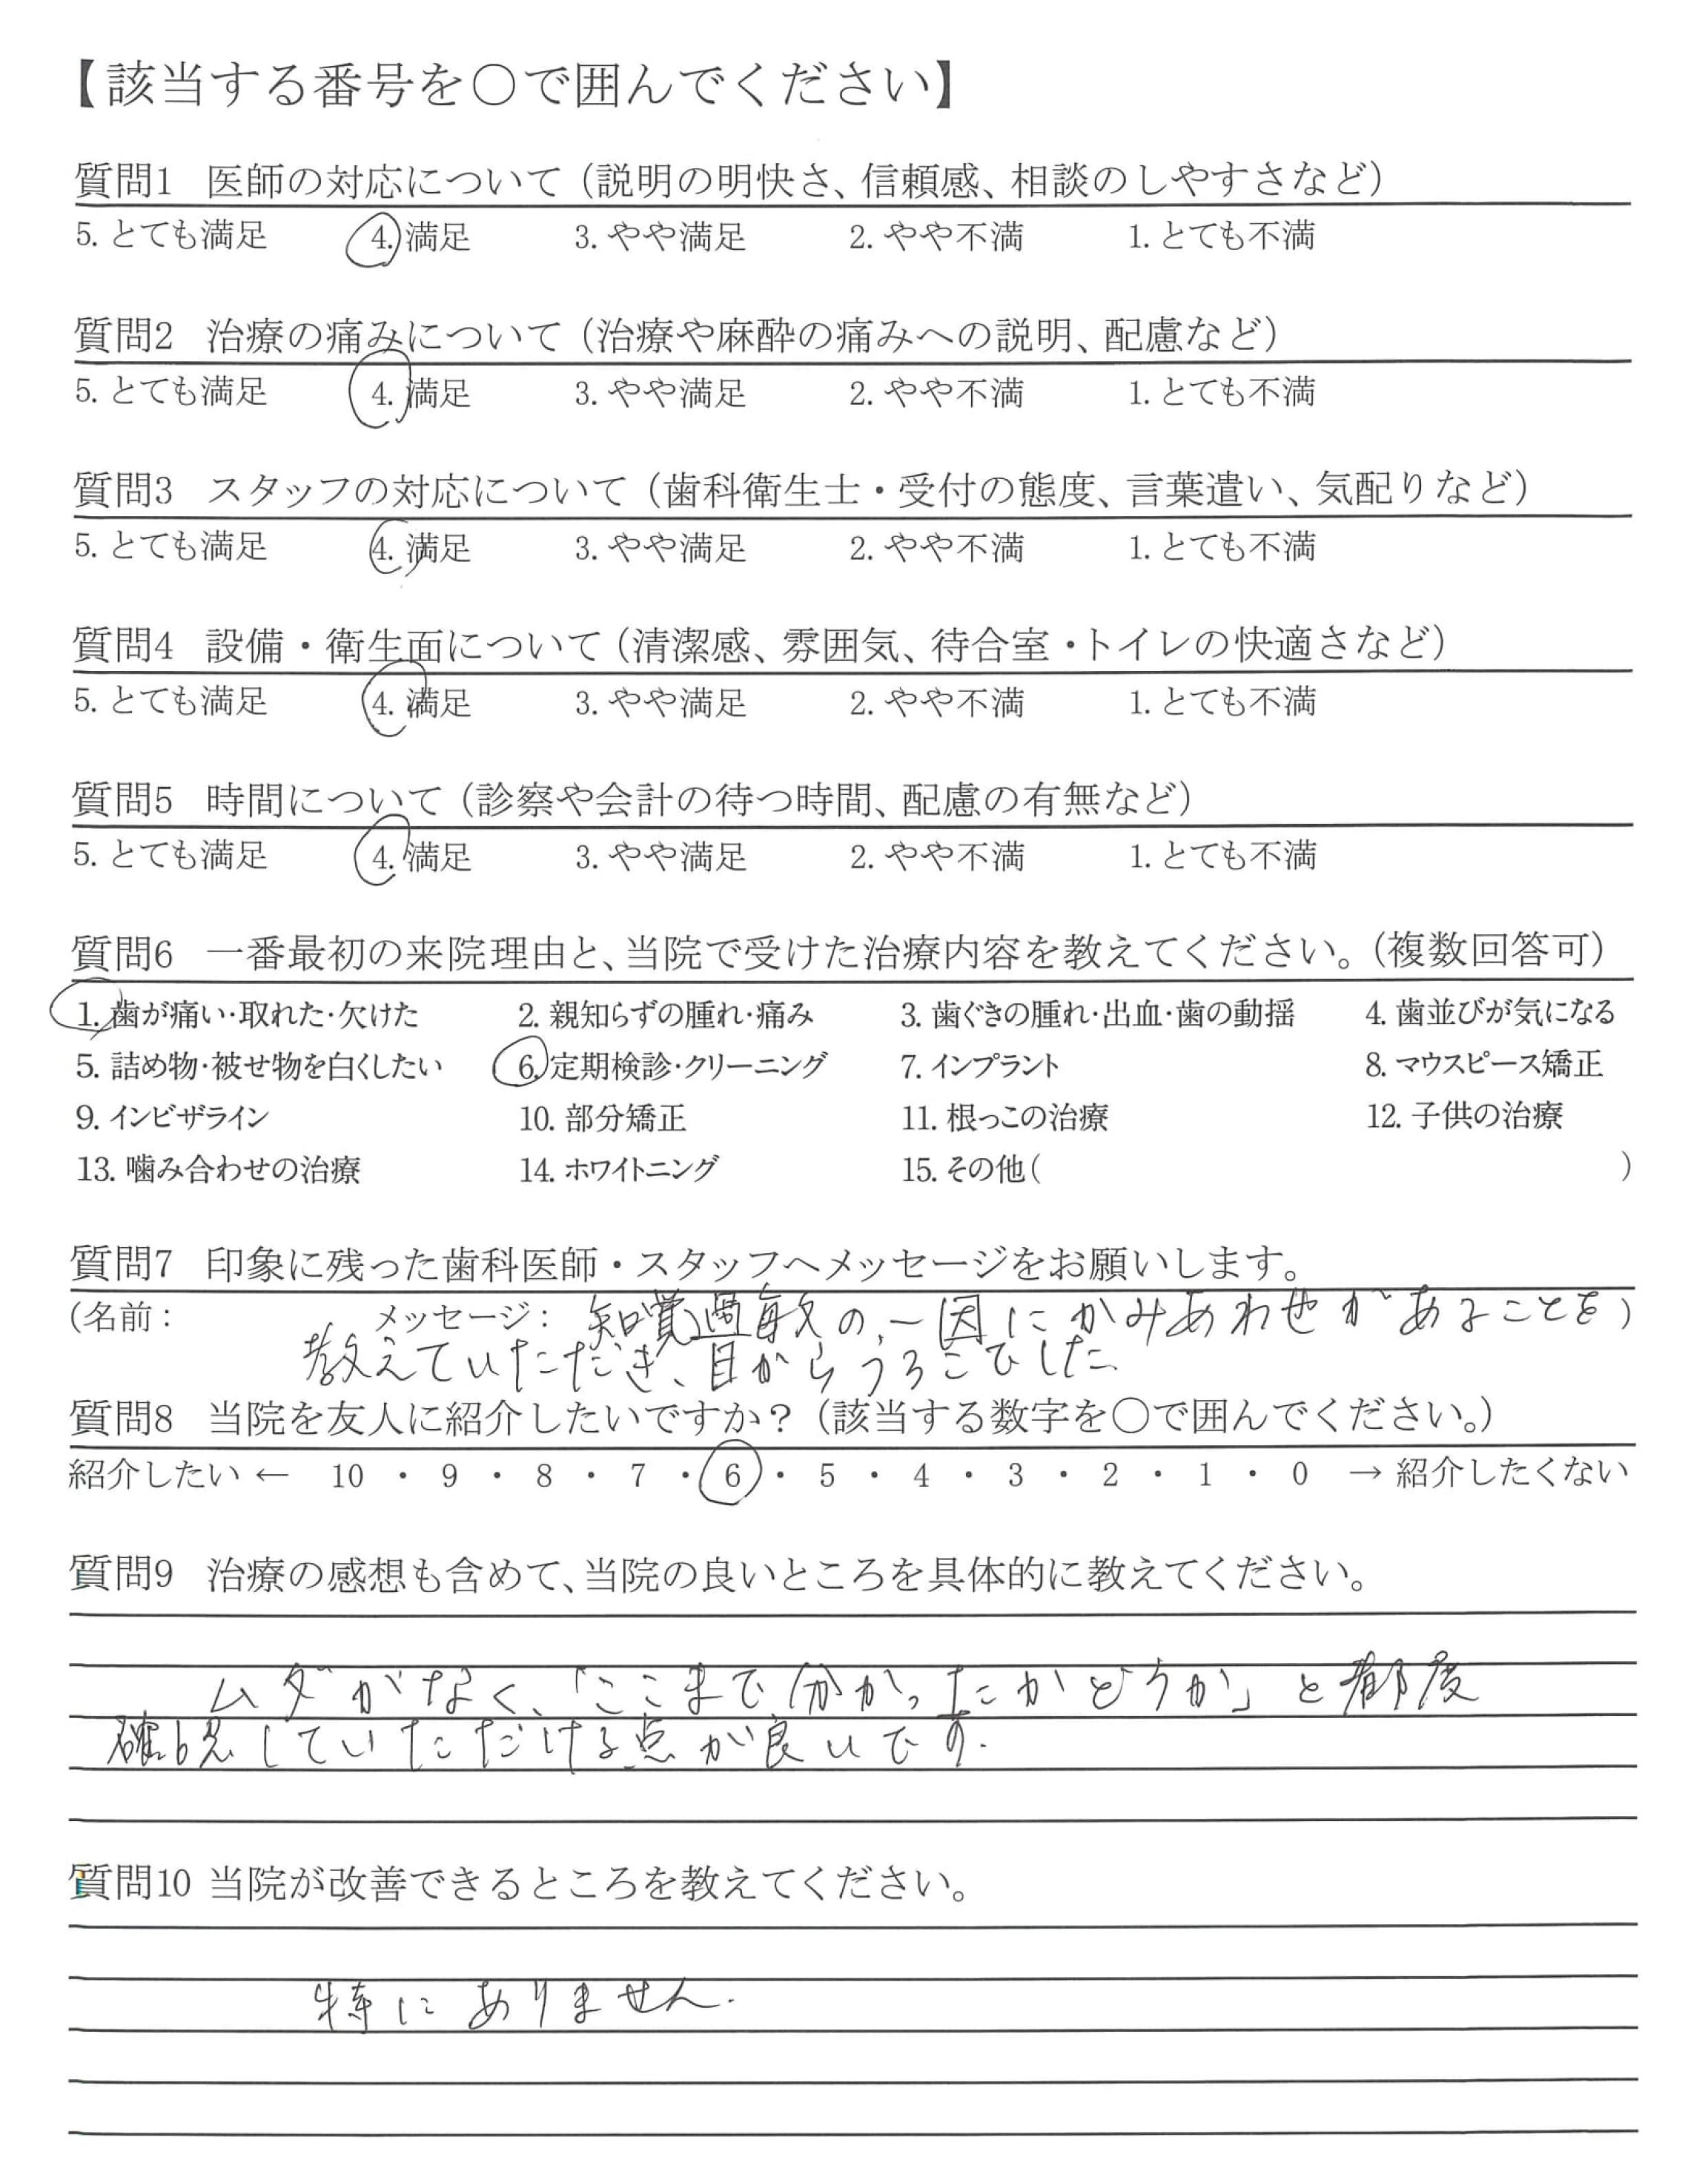 【該当する番号を○で囲んでください】
質問1 医師の対応について（説明の明快さ、信頼感、相談のしやすさなど）
5. とても満足 4. 満足 3. やや満足 2. やや不満 1. とても不満
質問2 治療の痛みについて（治療や麻酔の痛みへの説明、配慮など）
5. とても満足 4. 満足 3. やや満足 2. やや不満 1. とても不満
質問3 スタッフの対応について（歯科衛生士・受付の態度、言葉遣い、気配りなど）
5. とても満足 4. 満足 3. やや満足 2. やや不満 1. とても不満
質問4 設備・衛生面について（清潔感、雰囲気、待合室・トイレの快適さなど）
5. とても満足 4. 満足 3. やや満足 2. やや不満 1. とても不満
質問5 時間について（診察や会計の待つ時間、配慮の有無など）
5. とても満足 4. 満足 3. やや満足 2. やや不満 1. とても不満
質問6 一番最初の来院理由と、当院で受けた治療内容を教えてください。（複数回答可）
1. 歯が痛い・取れた・欠けた 2. 親知らずの腫れ・痛み 3. 歯ぐきの腫れ・出血・歯の動揺 4. 歯並びが気になる
5. 詰め物・被せ物を白くしたい 6. 定期検診・クリーニング 7. インプラント 8. マウスピース矯正
9. インビザライン 10. 部分矯正 11. 根っこの治療 12. 子供の治療
13. 噛み合わせの治療 14. ホワイトニング 15. その他( )
質問7 印象に残った歯科医師・スタッフへメッセージをお願いします。
(名前： メッセージ： 知覚過敏の、一因にかみあわせがあることを)
教えていただき、目からうろこでした.
質問8 当院を友人に紹介したいですか？（該当する数字を○で囲んでください。）
紹介したい ← 10 ・ 9 ・ 8 ・ 7 ・ 6 ・ 5 ・ 4 ・ 3 ・ 2 ・ 1 ・ 0 → 紹介したくない
質問9 治療の感想も含めて、当院の良いところを具体的に教えてください。
ムダがなく、「ここまで分かったかどうか」と都度
確認していただける点が良いです.
質問10 当院が改善できるところを教えてください。
特にありません.